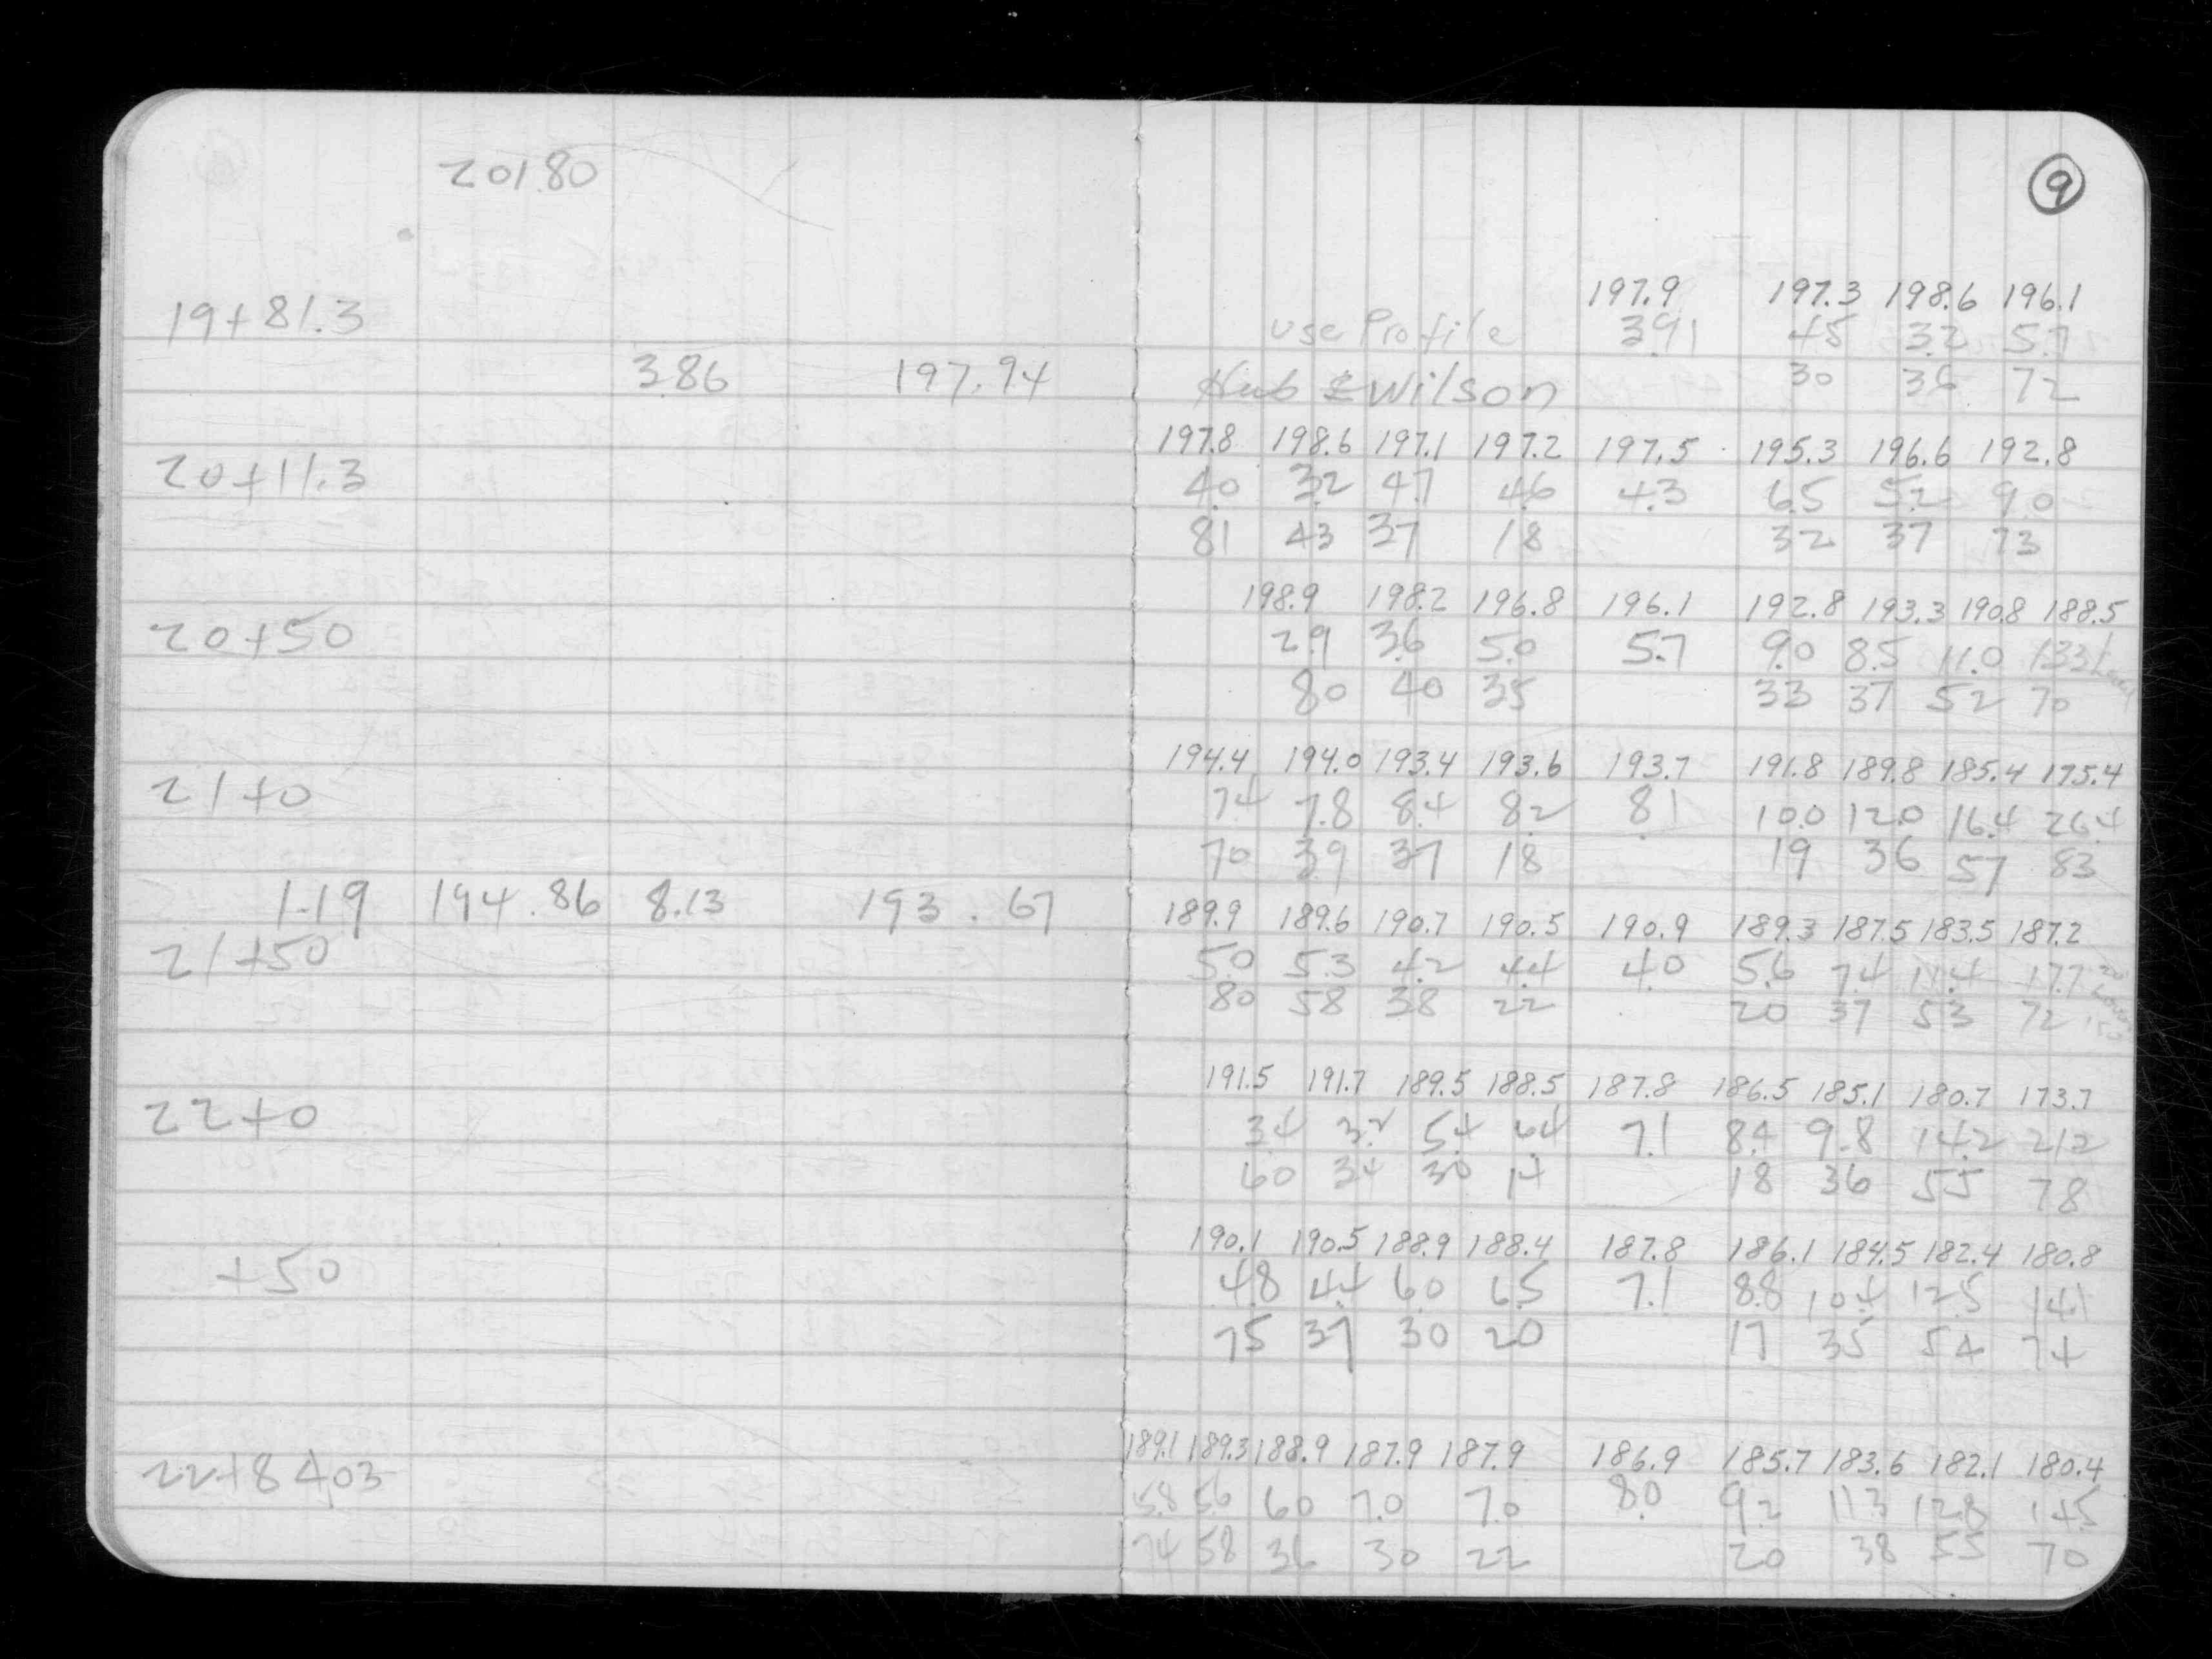 9
201.80
197.9 197.3 198.6 196.1
19+81.3 use Profile 3.91 4.5 3.2 5.7
3.86 197.94 Hub ₤ Wilson 30 36 72
197.8 198.6 197.1 197.2 197.5 195.3 196.6 192.8
20+11.3 4.0 3.2 4.7 4.6 4.3 6.5 5.2 9.0
81 43 37 18 32 37 73
198.9 198.2 196.8 196.1 192.8 193.3 190.8 188.5
20+50 2.9 3.6 5.0 5.7 9.0 8.5 11.0 133
80 40 35 33 37 52 70
194.4 194.0 193.4 193.6 193.7 191.8 189.8 185.4 175.4
21+0 7.4 7.8 8.4 8.2 8.1 10.0 12.0 16.4 26.4
70 39 37 18 19 36 57 83
1.19 194.86 8.13 193.67 189.9 189.6 190.7 190.5 190.9 189.3 187.5 183.5 187.2
21+50 5.0 5.3 4.2 4.4 4.0 5.6 7.4 11.4 17.7
80 58 38 22 20 37 53 72
191.5 191.7 189.5 188.5 187.8 186.5 185.1 180.7 173.7
22+0 3.4 3.2 5.4 6.4 7.1 8.4 9.8 14.2 21.2
60 34 30 14 18 36 55 78
190.1 190.5 188.9 188.4 187.8 186.1 184.5 182.4 180.8
+50 4.8 4.4 6.0 6.5 7.1 8.8 10.4 12.5 14.1
75 37 30 20 17 35 54 74
189.1 189.3 188.9 187.9 187.9 186.9 185.7 183.6 182.1 180.4
22+84.03 5.8 5.6 6.0 7.0 7.0 8.0 9.2 11.3 12.8 14.5
74 58 36 30 22 20 38 55 70